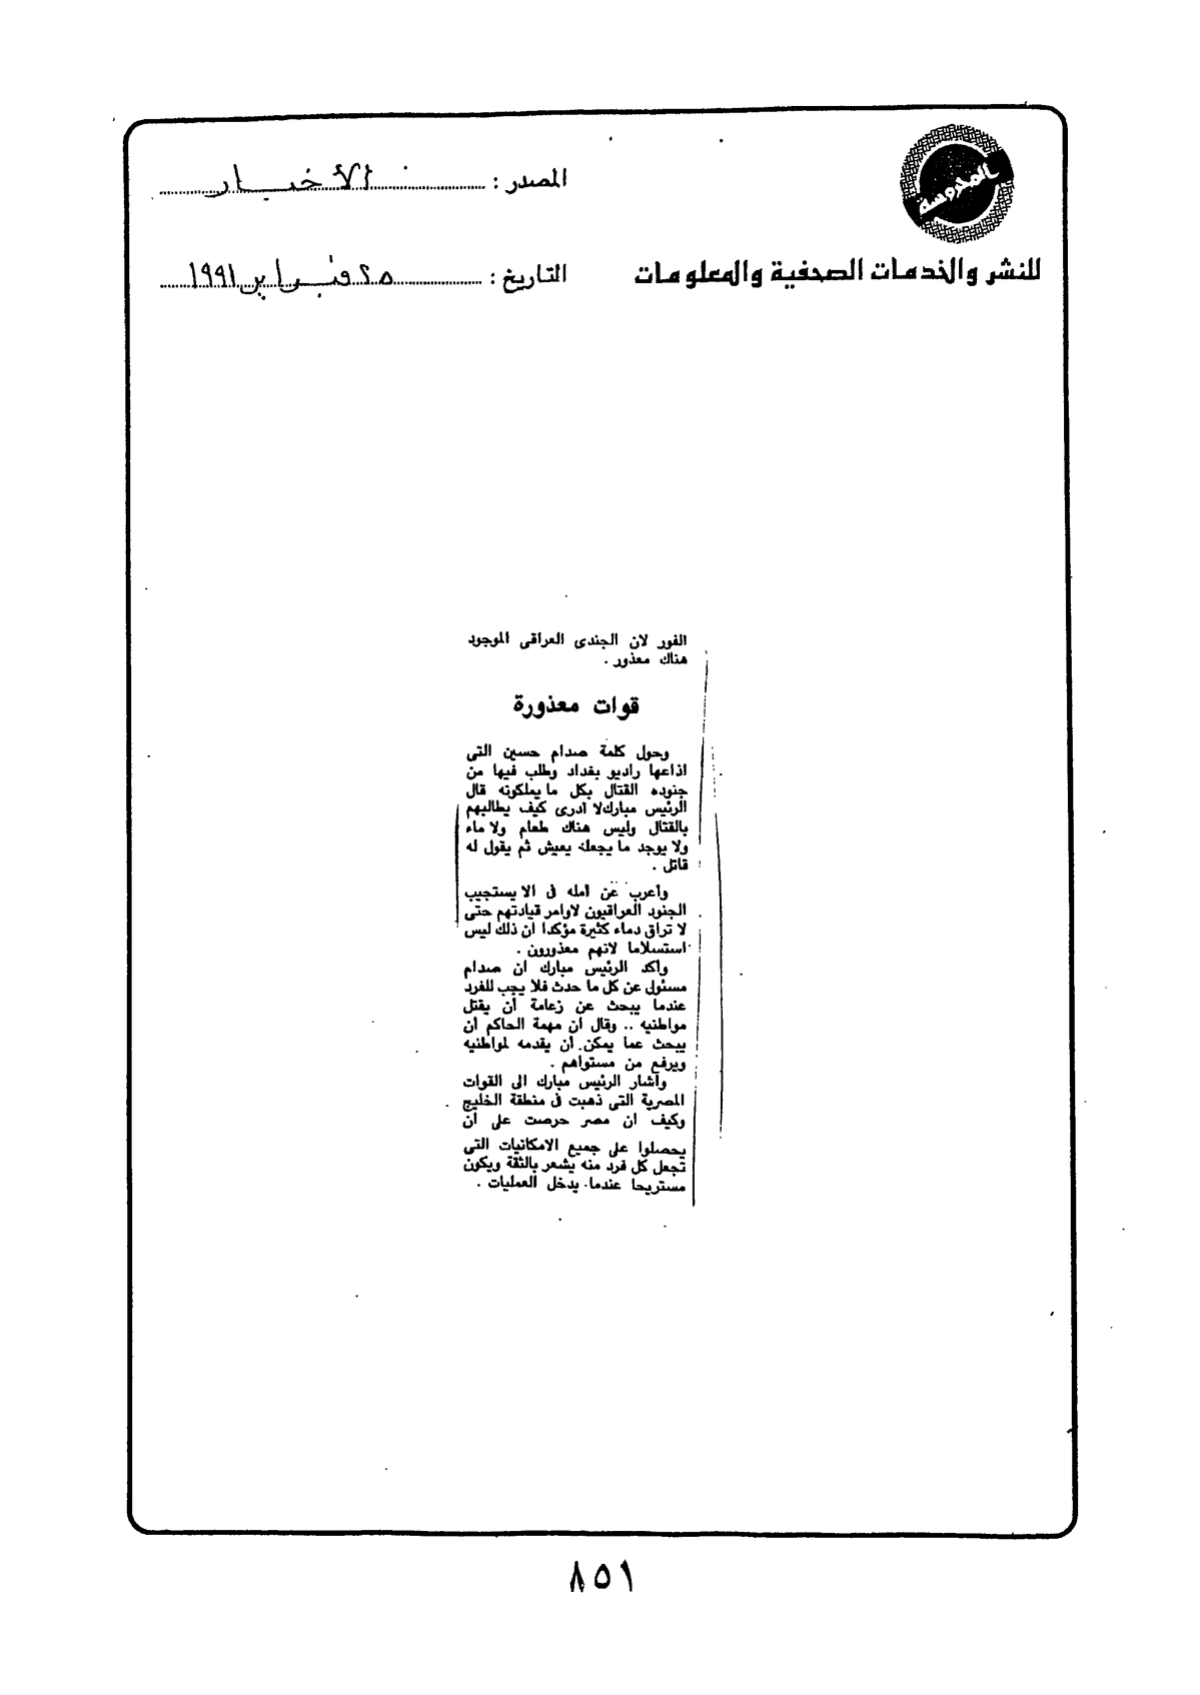 المحروسة
المصدر : الأخبار
للنشر والخدمات الصحفية والمعلومات
التاريخ : ٢٥ فبراير ١٩٩١
الفور لان الجندى العراقى الموجود
هناك معذور .
قوات معذورة
وحول كلمة صدام حسين التى
اذاعها راديو بغداد وطلب فيها من
جنوده القتال بكل ما يملكونه قال
الرئيس مبارك لا أدرى كيف يطالبهم
بالقتال وليس هناك طعام ولا ماء
ولا يوجد ما يجعله يعيش ثم يقول له
قاتل .
وأعرب عن أمله فى الا يستجيب
الجنود العراقيون لاوامر قيادتهم حتى
لا تراق دماء كثيرة مؤكدا ان ذلك ليس
استسلاما لانهم معذورون .
وأكد الرئيس مبارك ان صدام
مسئول عن كل ما حدث فلا يجب للفرد
عندما يبحث عن زعامة أن يقتل
مواطنيه .. وقال ان مهمة الحاكم أن
يبحث عما يمكن أن يقدمه لمواطنيه
ويرفع من مستواهم .
وأشار الرئيس مبارك الى القوات
المصرية التى ذهبت فى منطقة الخليج
وكيف ان مصر حرصت على أن
يحصلوا على جميع الامكانيات التى
تجعل كل فرد منه يشعر بالثقة ويكون
مستريحا عندما يدخل العمليات .
٨٥١